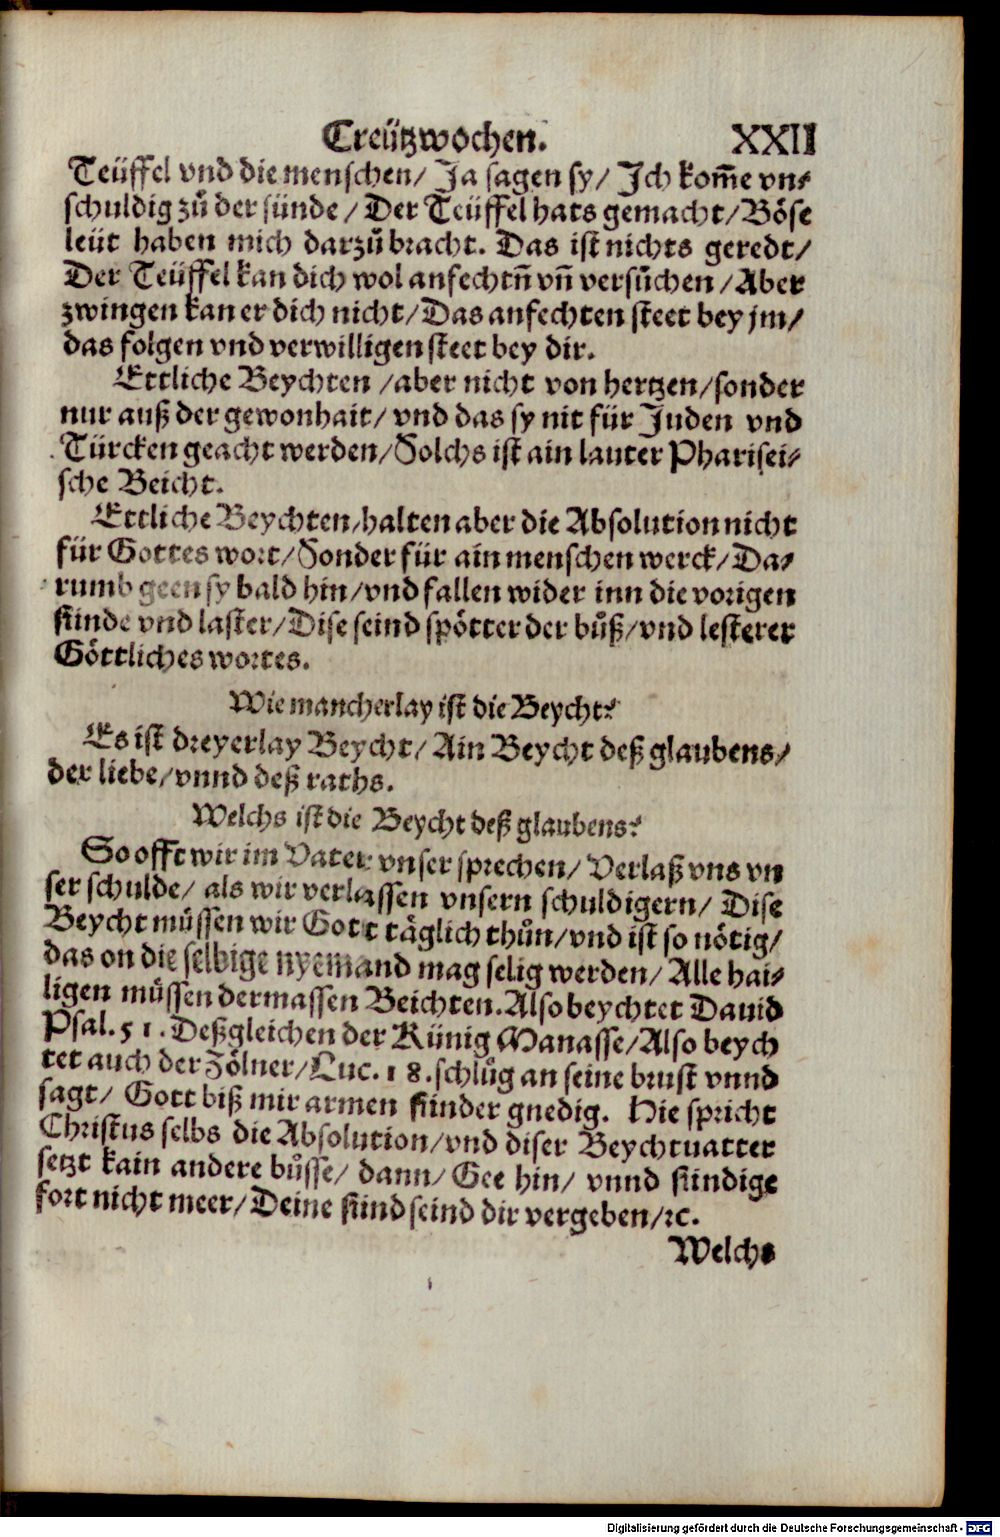 Creützwochen. XXII
Teüffel vnd die menschen/ Ja sagen sy/ Ich kom̃e vn⸗
schuldig zů der sünde/ Der Teüffel hats gemacht/ Böse
leüt haben mich darzů bracht. Das ist nichts geredt/
Der Teüffel kan dich wol anfechtñ vñ versůchen/ Aber
zwingen kan er dich nicht/ Das anfechten steet bey jm/
das folgen vnd verwilligen steet bey dir.
Ettliche Beychten/ aber nicht von hertzen/ sonder
nur auß der gewonhait/ vnd das sy nit für Juden vnd
Türcken geacht werden/ Solchs ist ain lauter Pharisei⸗
sche Beicht.
Ettliche Beychten/ halten aber die Absolution nicht
für Gottes wort/ Sonder für ain menschen werck/ Da⸗
rumb geen sy bald hin/ vnd fallen wider inn die vorigen
sünde vnd laster/ Dise seind spötter der bůß/ vnd lesterer
Göttliches wortes.
Wie mancherlay ist die Beycht?
Es ist dreyerlay Beycht/ Ain Beycht deß glaubens/
der liebe/ vnnd deß raths.
Welchs ist die Beycht deß glaubens?
So offt wir im Vater vnser sprechen/ Verlaß vns vn
ser schulde/ als wir verlassen vnsern schuldigern/ Dise
Beycht müssen wir Gott täglich thůn/ vnd ist so nötig/
das on die selbige nyemand mag selig werden/ Alle hai⸗
ligen müssen dermassen Beichten. Also beychtet Dauid
Psal. 51. Deßgleichen der Künig Manasse/ Also beych
tet auch der Zölner/ Luc. 18. schlůg an seine brust vnnd
sagt/ Gott biß mir armen sünder gnedig. Hie spricht
Christus selbs die Absolution/ vnd diser Beychtuatter
setzt kain andere bůsse/ dann/ Gee hin/ vnnd sündige
fort nicht meer/ Deine sünd seind dir vergeben/ ꝛc.
Welchs
Digitalisierung gefördert durch die Deutsche Forschungsgemeinschaft - DFG